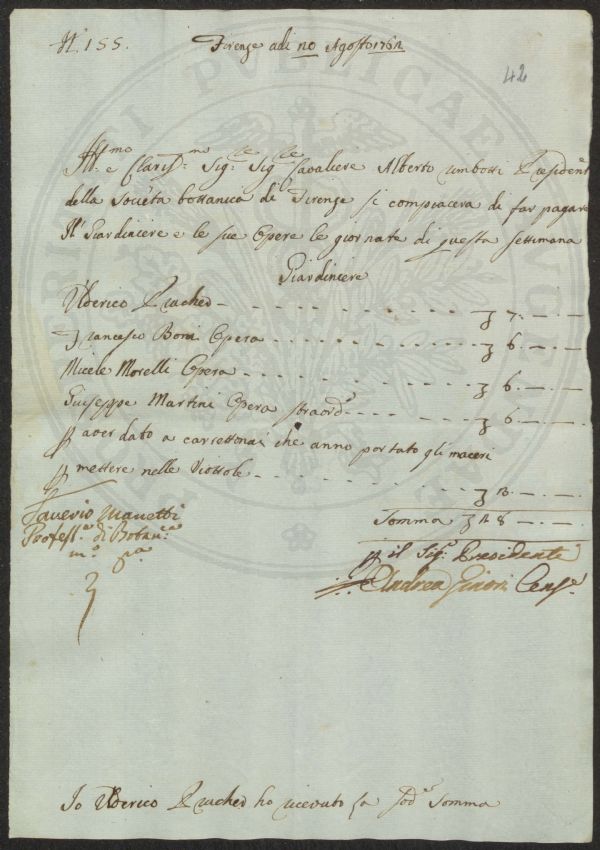 N.° 155.
Firenze adi 20 Agosto 1762
42
Ill.mo e Clariss.mo Sig.re Sig.re Cavaliere Alberto Rimbotti Presidente
della Società bottanica di Firenze si compiacera di far pagare
Il Giardiniere e le sue Opere le giornate di questa settimana
Giardiniere
Ulderico Prucher 7.
Francesco Boni Opera 6.
Micele Morelli Opera 6.
Guiseppe Martini Opera straord.a 6.
P aver dato a carrettonai che anno portato gli maceri
P mettere nelle Viottole
Somma 8
Saverio Manetti
Profess.e di Botan.ca
m.o p.a
P il Sig.r Presidente
Andrea Ginori Cens.e
Io Ulderico Prucher ho ricevuto la Sod.a Somma